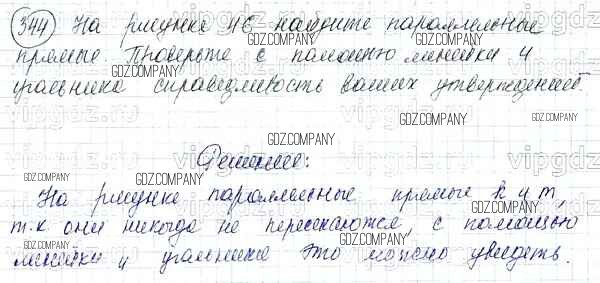 344 На рисунке 46 найдите параллельные
прямые. Проверьте с помощью линейки и
угольника справедливость ваших утверждений.
Решение:
На рисунке параллельные прямые k и m,
т.к они никогда не пересекаются, с помощью
линейки и угольника это можно увидеть.